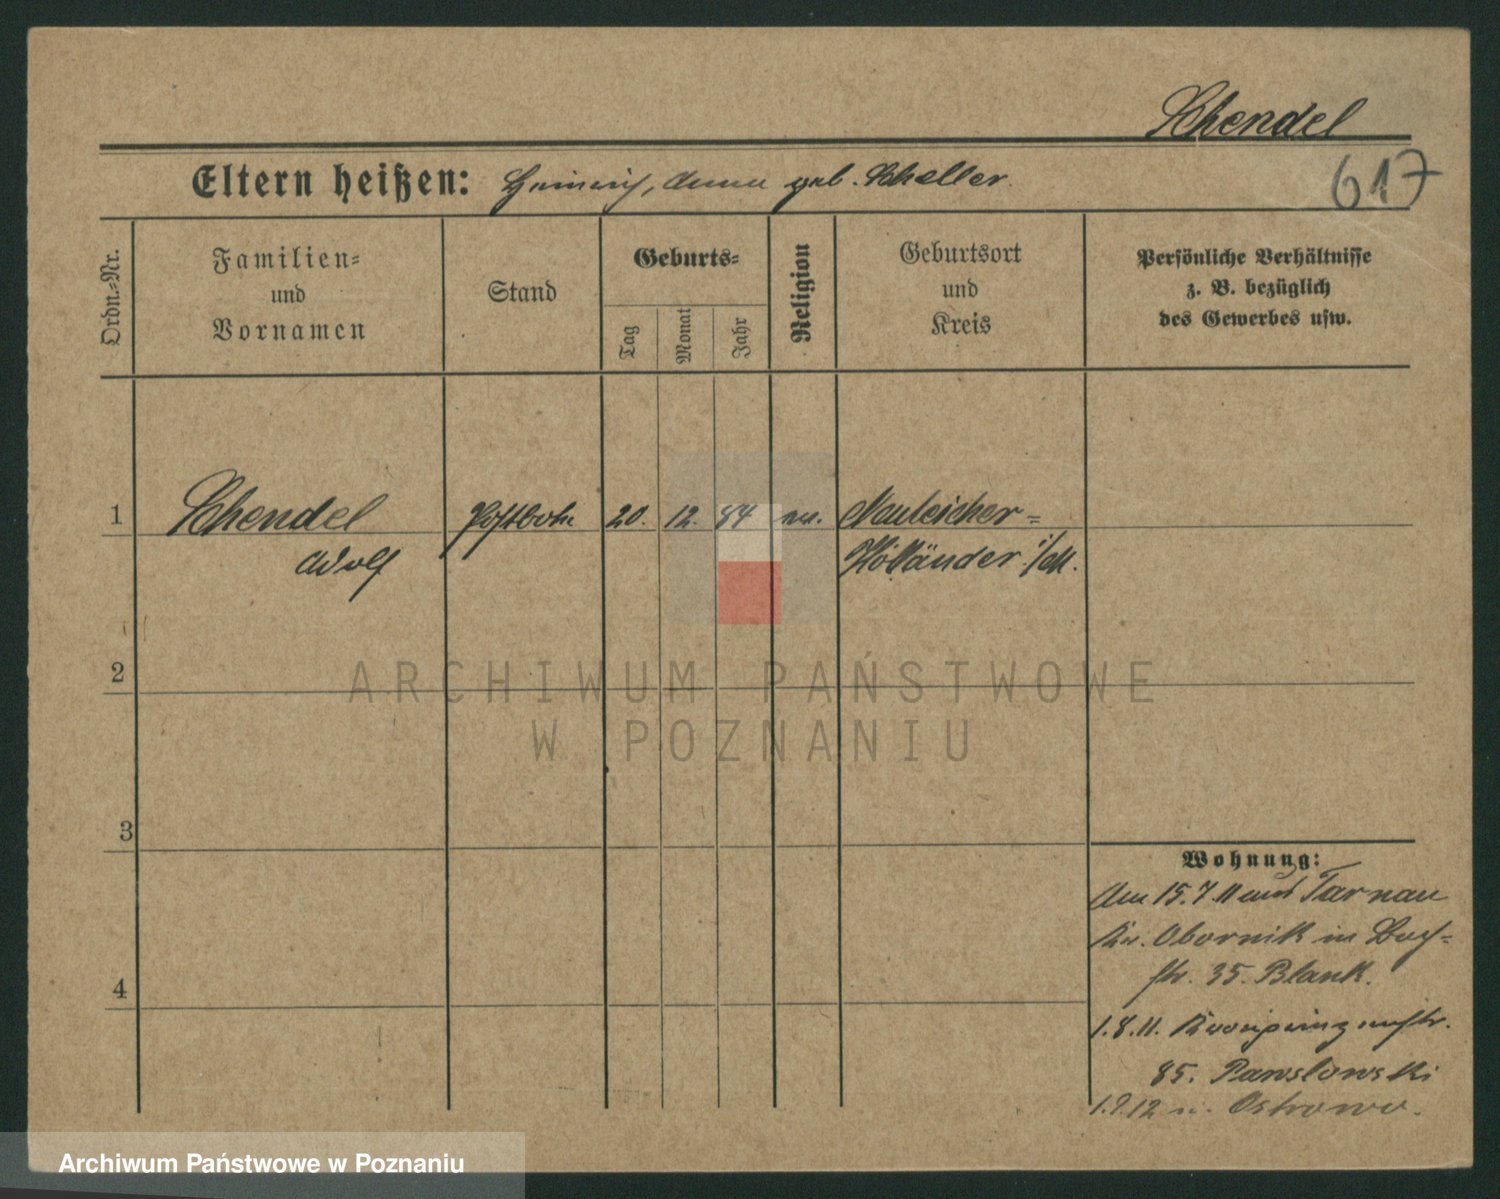 Schendel
Eltern heißen: Heinrich, Anna geb. Scheller.
617
Ordn.=Nr.
Familien=
und
Vornamen
Stand
Geburts=
Tag
Monat
Jahr
Religion
Geburtsort
und
Kreis
Persönliche Verhältnisse
z. B. bezüglich
des Gewerbes usw.
1 Schendel Postbote 20. 12. 84 ev. Neuleicher=
Adolf Holländer i/M.
2
3
4
Wohnung:
Am 15.7.11 aus Tarnau
Kr. Obornik in Bach=
str. 35. Blank.
1.8.11. Kronprinzenstr.
85. Pawslowski
1.9.12 n. Ostrowo.
ARCHIWUM PAŃSTWOWE
W POZNANIU
Archiwum Państwowe w Poznaniu